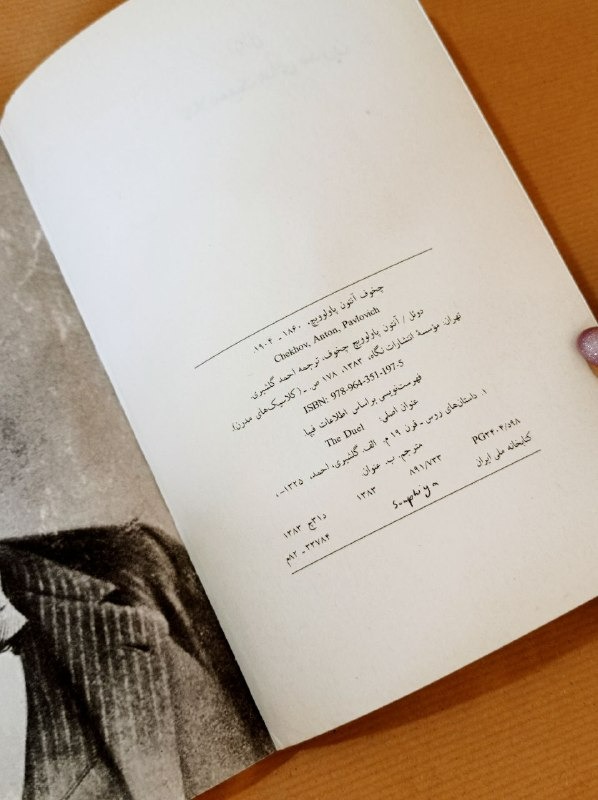 چخوف آنتون پاولوویچ، ۱۸۶۰ ـ ۱۹۰۴.
Chekhov, Anton, Pavlovich
دوئل / آنتون پاولوویچ چخوف، ترجمه احمد گلشیری.
تهران: مؤسسهٔ انتشارات نگاه، ۱۳۸۳. ۱۷۸ ص. ـ (کلاسیک‌های مدرن).
ISBN: 978-964-351-197-5
فهرست‌نویسی براساس اطلاعات فیپا.
عنوان اصلی: The Duel
۱. داستان‌های روسی ـ قرن ۱۹ م. الف. گلشیری، احمد، ۱۳۲۵ـ،
مترجم. ب. عنوان
PG۳۴۰۴/۵۹۸ ۸۹۱/۷۳۳ ۱۳۸۳ د۳۱چ ۱۳۸۳
کتابخانه ملی ایران ۲۳۷۸۴ـ۸۲م